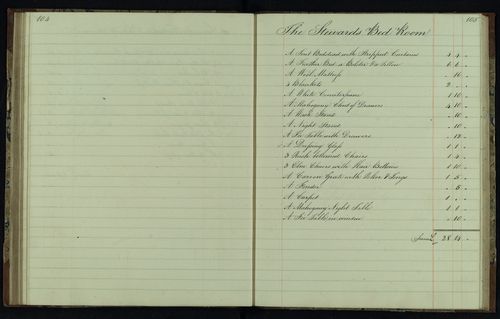 104
105
The Stewards Bed Room
A Tent Bedstead with Stripped Curtains 4 4 -
A Feather Bed a Bolster & Pillow 6 6 -
A Wool Mattress - 16 -
4 Blankets 2 - -
A White Counterpane 1 10 -
A Mahogany Chest of Drawers 4 10 -
A Wash Stand - 10 -
A Night Stand - 10 -
A Fir Table with Drawers - 12 -
A Dressing Glass 1 1 -
3 Rush bottomed Chairs 1 4 -
3 Elm Chairs with Hair Bottoms 1 10 -
A Carron Grate with Poker & Tongs 1 5 -
A Fender - 5 -
A Carpet 1 - -
A Mahogany Night Table 1 1 -
A Fir Table in window - 10 -
£ 28 14 -